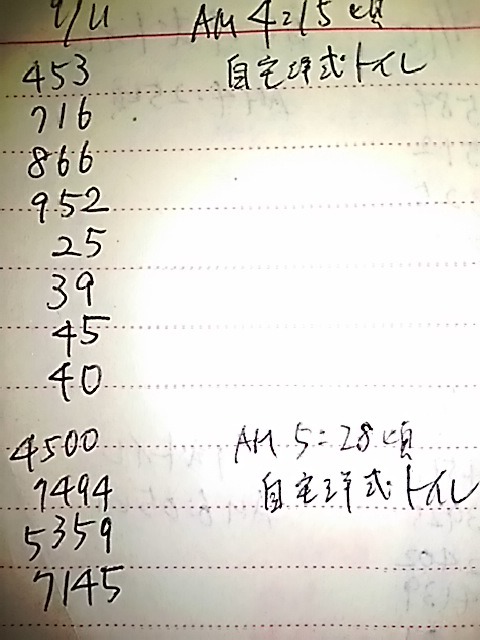 9/11 AM 4:15頃
453 自宅洋式トイレ
716
866
952
25
39
45
40
4500 AM 5:28頃
7494 自宅洋式トイレ
5359
7145